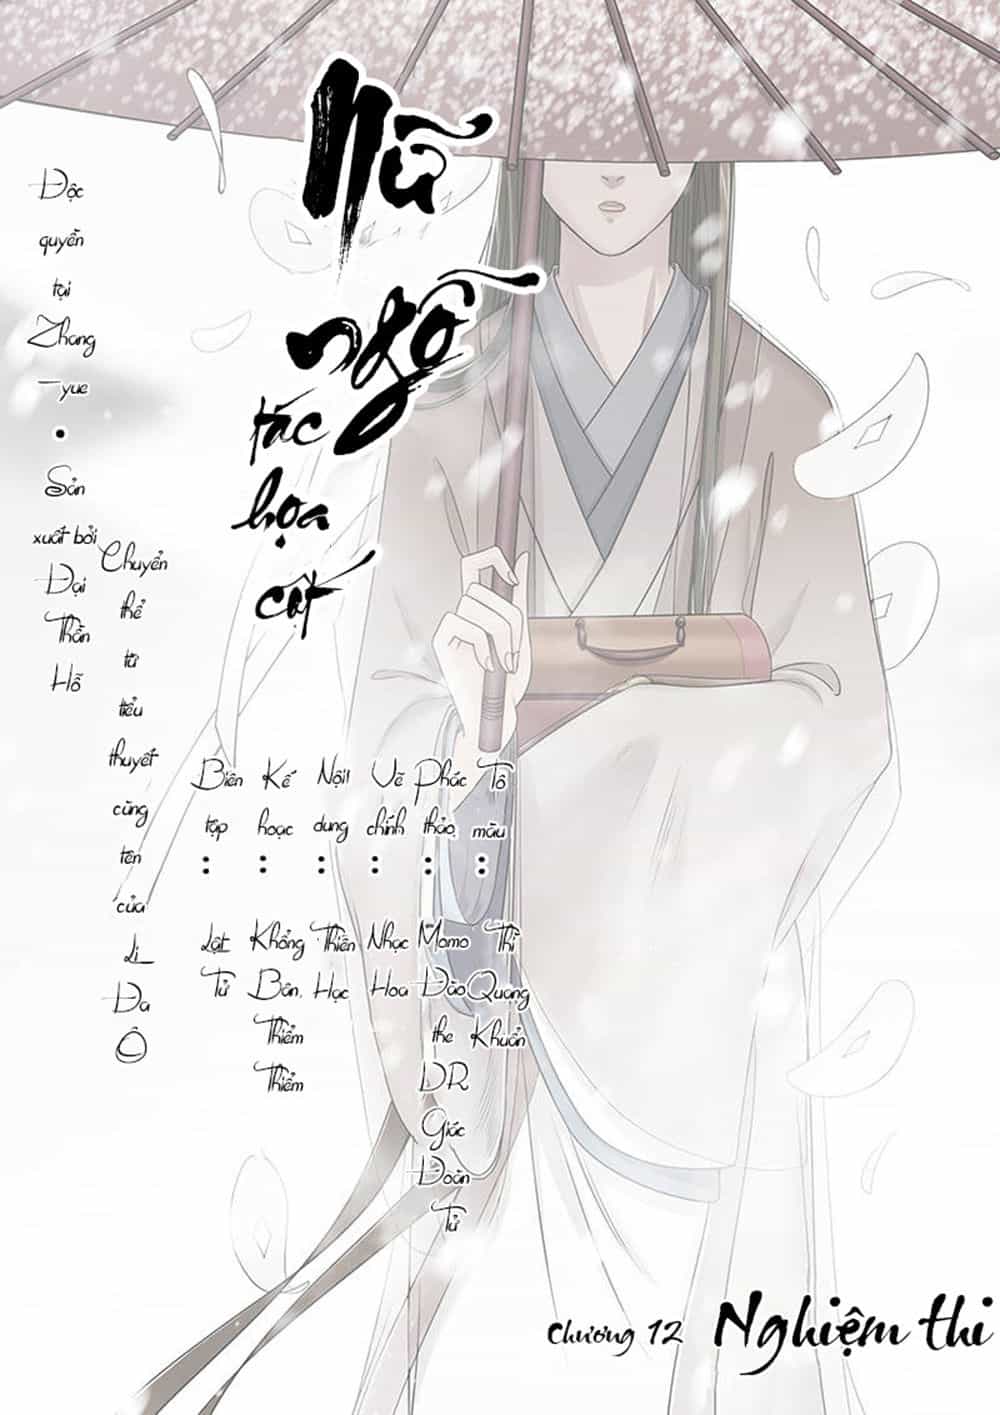 Nữ
ngỗ
tác
họa
cốt
Độc quyền tại Zhang-yue • Sản xuất bởi Đại Thần Hỗ
Chuyển thể từ tiểu thuyết cùng tên của Li Đa Ô
Biên tập : Lật Tử
Kế hoạc : Khổng Bân, Thiểm Thiểm
Nội dung : Thiên Hạc
Vẽ chính : Nhạc Hoa
Phác thảo : Momo Đào the DR Giác Đoàn Tử
Tô màu : Thì Quang Khuẩn
Chương 12 Nghiệm thi